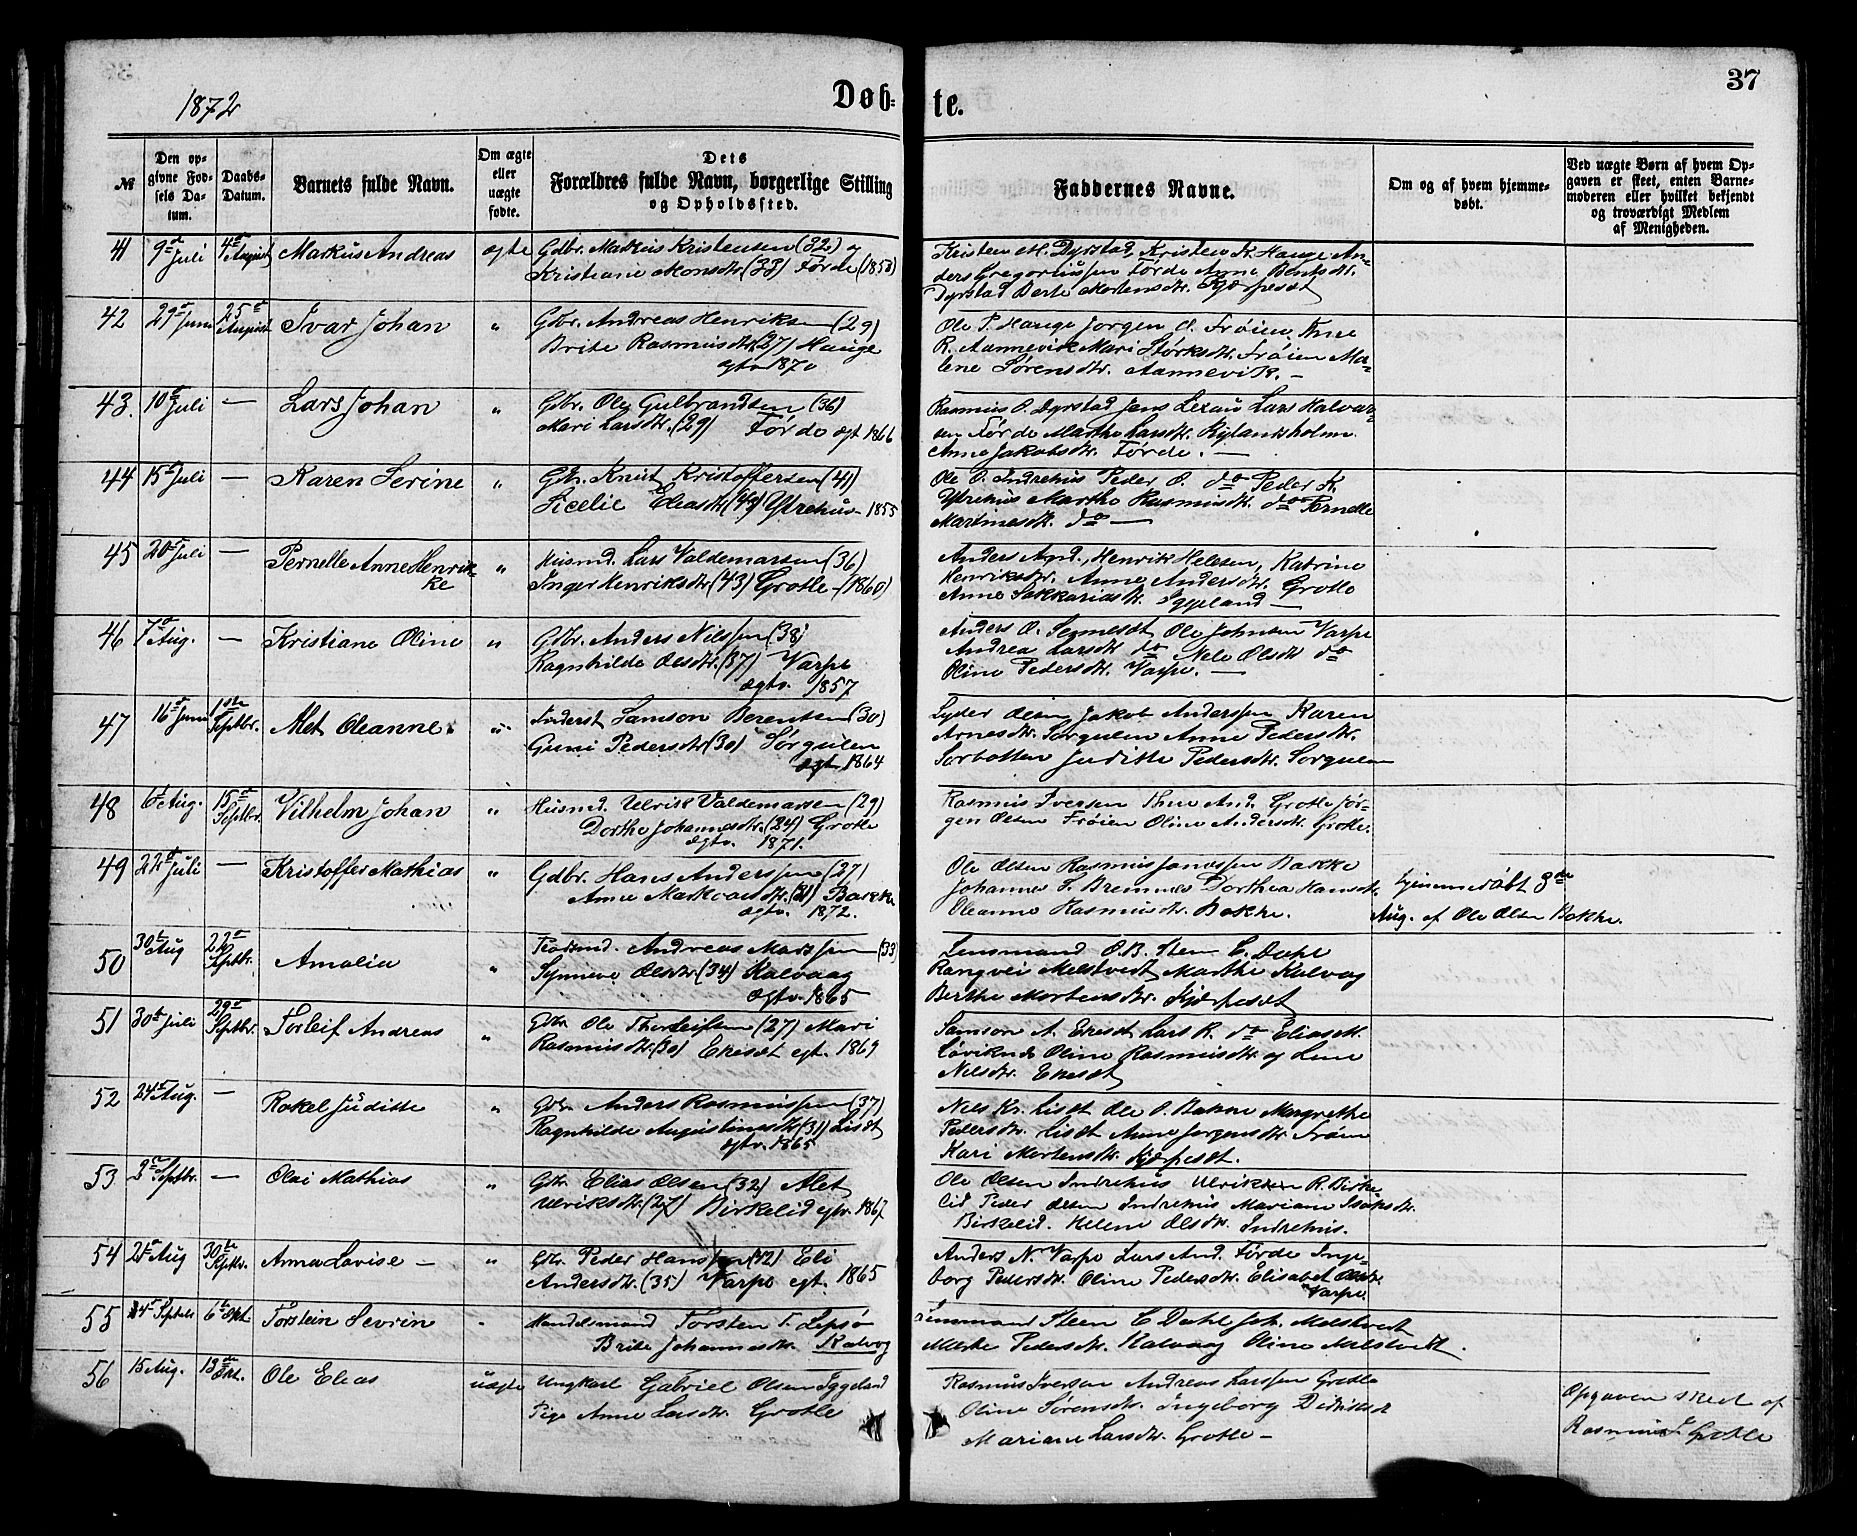 1872
Døb-
te.
37
№
Den op-
givne Fød-
sels Da-
tum.
Daabs-
Datum.
Barnets fulde Navn.
Om ægte
eller
uægte
fødte.
Dets
Forældres fulde Navn, borgerlige Stilling
og Opholdssted.
Faddernes Navne.
Om og af hvem hjemme-
døbt.
Ved uægte Børn af hvem Op-
gaven er skeet, enten Barne-
moderen eller hvilket bekjendt
og troværdigt Medlem
af Menigheden.
41 9de Juli 4de August Markus Andreas ægte Gdbr. Mathias Kristensen (32) og
Kristiane Monsdtr. (33) Førde (1858)
Kristen M. Dyrstad, Kristen K. Hauge An-
ders Gregoriussen Førde Anne Bentsdt.
Dyrstad Berte Mortensdtr.
42 29de Juni 25de August Ivar Johan " Gbr. Andreas Henriksen (29)
Brite Rasmusdtr. (27) Hauge
egtv 1870
Ole P. Hauge Jørgen O. Frøien
R. Aannevik Mari Størksdtr. Frøien Ma-
lene Sørensdtr. Aannevik. –
43. 10de Juli — Lars Johan " Gbr. Ole Gulbrandsen (36)
Mari Larsdtr. (29) Førde egt 1866
Rasmus O. Dyrstad Jens Lexau Lars Halvor-
sen Førde Marthe Larsdtr. Rylandsholm.
Anne Jakobsdtr. Førde. —
44 15de Juli — Karen Serine " Gbr. Knut Kristoffersen (41)
Sicelie Eliasdt. Ytrehus – 1855
Ole O. Indrehus Peder O. do Peder K.
Ytrehus Marthe Rasmusdt. do Pernelle
Martinesdt. do —
45 20de Juli — Pernelle Anne Henrik-
ke " Husmd. Lars Valdemarsen (36)
Inger Henriksdtr. (43) Grotle – (1860)
Anders And., Henrik Helesen, Katrine
Henriksdtr. Anne Andersdtr. Grotle
Anne Sakkariasdt. Iggeland —
46 7de Aug. — Kristiane Oline " Gbr. Anders Nilssen (38)
Ragnhilde Olsdtr. (37) Varpe
ægtv. 1857
Anders O. Ole Johnsen Varpe
Andrea Larsdt. do Nele Olsdt. do
Oline Pedersdtr. Varpe. —
47 16de Juni 1ste Septbr. Alet Oleanne " Inderst Samson Berentsen (30)
Guni Pedersdtr. (30) Sørgulen
ægt 1864
Lyder Olsen Jakob Anderssen Karen
Arnesdtr. Sørgulen Anne Pedersdtr.
Sørbotten Juditte Pedersdtr. Sørgulen
48 6te Aug. 15de Septbr. Vilhelm Johan " Husmd. Ulrik Valdemarsen (29)
Dorthe Johannesdtr. (24) Grotle
ægtv. 1871.
Rasmus Iversen Thue And. Grotle Jør-
gen Olsen Frøien Oline Andersdtr. Grotle.
49 22de Juli — Kristoffer Mathias " Gdbr. Hans Anderssen (27)
Anne Markvardsdtr. Bakke
ægtv. 1872.
Ole Olsen Rasmus Bakke
Johanne F. Bremnes Dorthea Hansdt.
Oleanne Rasmusdtr. Bakke.
hjemmedøbt 3die
Aug. af Ole Olsen Bakke.
50 30te Aug 22de Septbr. Amalia " Andreas Marssen (33)
Synneve Olsdtr (34) Kalvaag
ægtv. 1865
Lensmand O. B. Steen C. Dahl
Rangvei Melstvedt Marthe Kalvag
Berthe Mortensdtr.
51 30te Juli 29de Septbr. Torleif Andreas " Gbr Ole Thorleifsen (27) Mari
Rasmusdtr. (30) Eksedt egt. 1869
Samson A. Eksedt Lars R. do Elias M.
Oline Rasmusdtr. og Lene
Nilsdtr. Eksedt
52 24de Aug. — Rakel Juditte " Gbr. Anders Rasmussen (37)
Ragnhilde Augustinusdt. (31) Lisdt
egtv. 1865
Nils Kr. Lisdt Ole O. Bakke Margrethe
Pedersdtr. Lisdt Anne Jørgensdtr. Frøien
Kari Mortensdtr.
53 2den Septbr. — Olai Mathias " Gbr. Elias Olsen (32) Alet
Ulriksdtr. (27) Birkelid egtv. 1867
Ole Olsen Indrehus Ulrikken R. Birke-
lid Peder Olsen Indrehus Mariane Isaksdtr.
Birkelid. Helene Olsdtr. Indrehus.
54 21de Aug 30te Sptbr. Anna Lovise – " Gbr. Peder Hanssen (42) Eli
Andersdtr. (35) Varpe egt. 1865
Anders N. Varpe Lars And. Førde Inge-
borg Pedersdtr. Oline Pedersdtr. Elisabet Olsdtr.
Varpe.
55 14de Septbr 6te Okt. Torstein Sevrin " Handelsmand Torsten T. Lepsø
Brite Johannesdtr. Kalvog
Lensmand Steen C Dahl Joh. Melstvedt
Merte Pedersdtr. Kalvaag Oline Melstvedt.
56 15 Aug. 13de Okt. Ole Elias uægte Ungkarl Gabriel Olsen Iggeland
Pige Anne Larsdtr. Grotle
Rasmus Iversen Andreas Larssen Grotle
Oline Sørensdtr. Ingeborg Didriksdt
Mariane Larsdtr. Grotle –
Opgaven skeet af
Rasmus I. Grotle